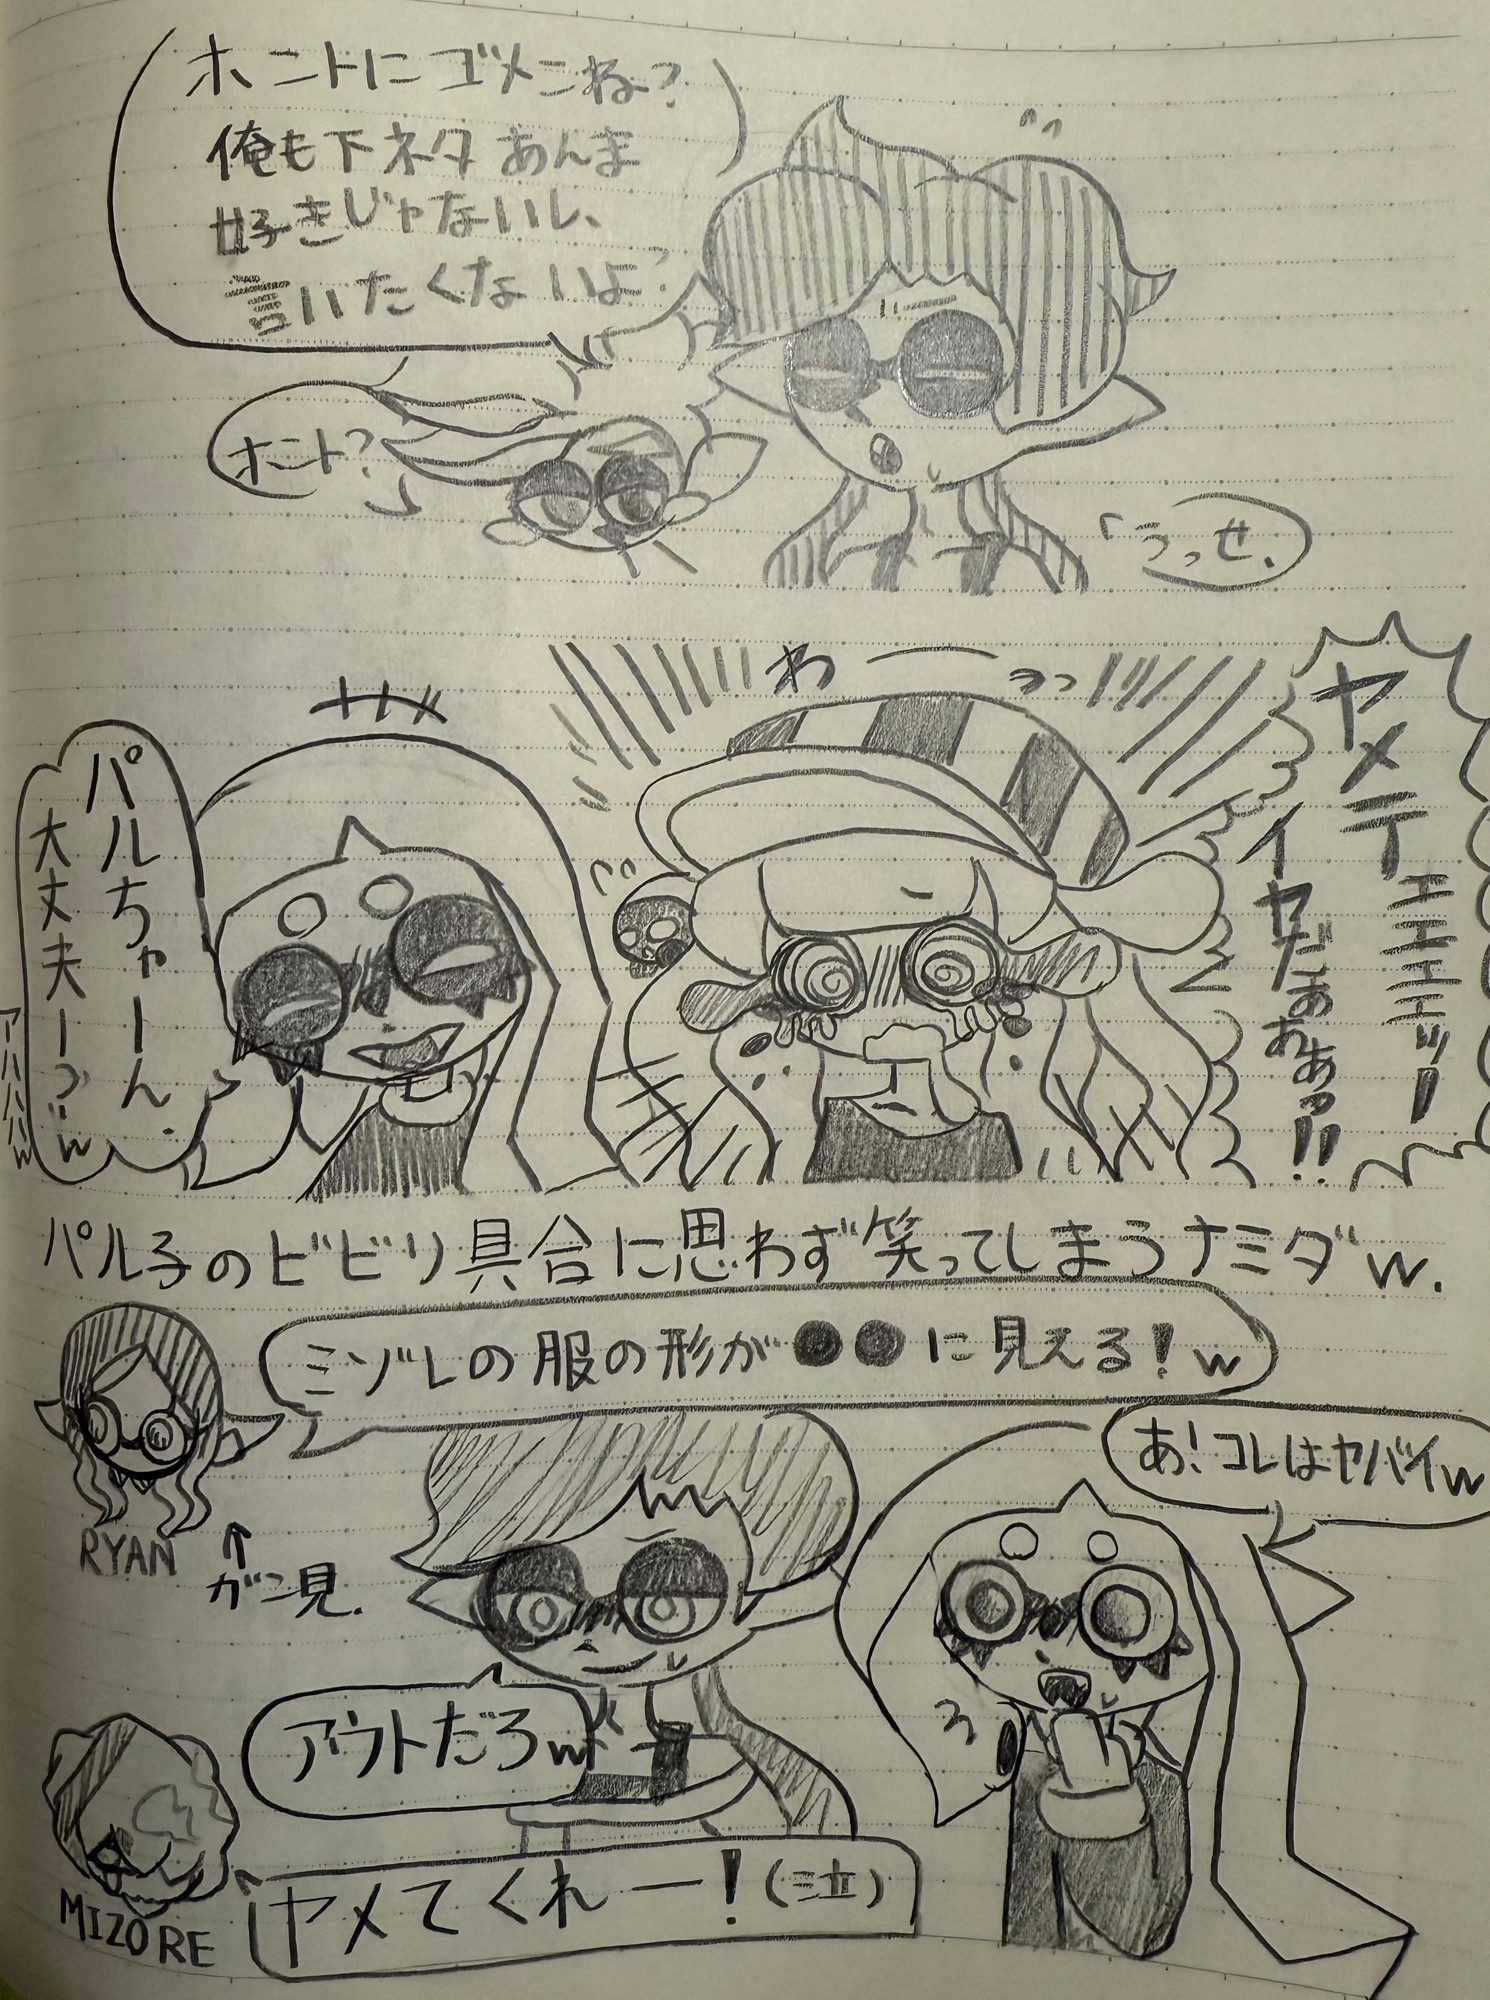 ホントにゴメンね?
俺も下ネタあんま
好きじゃないし、
言いたくないよ?
ホント?
「うっせ.
わーっ!!
ヤメテ
エエエエッー
イヤだぁぁぁっ!!
パルちゃーん.
大丈夫ーっ"w
アハハハw
パル子のビビリ具合に思わず笑ってしまうナミダw.
ミゾレの服の形が●●に見える!w
あ!コレはヤバイw
RYAN
↑
ガン見.
アウトだろw
ヤメてくれー!(泣)
MIZORE